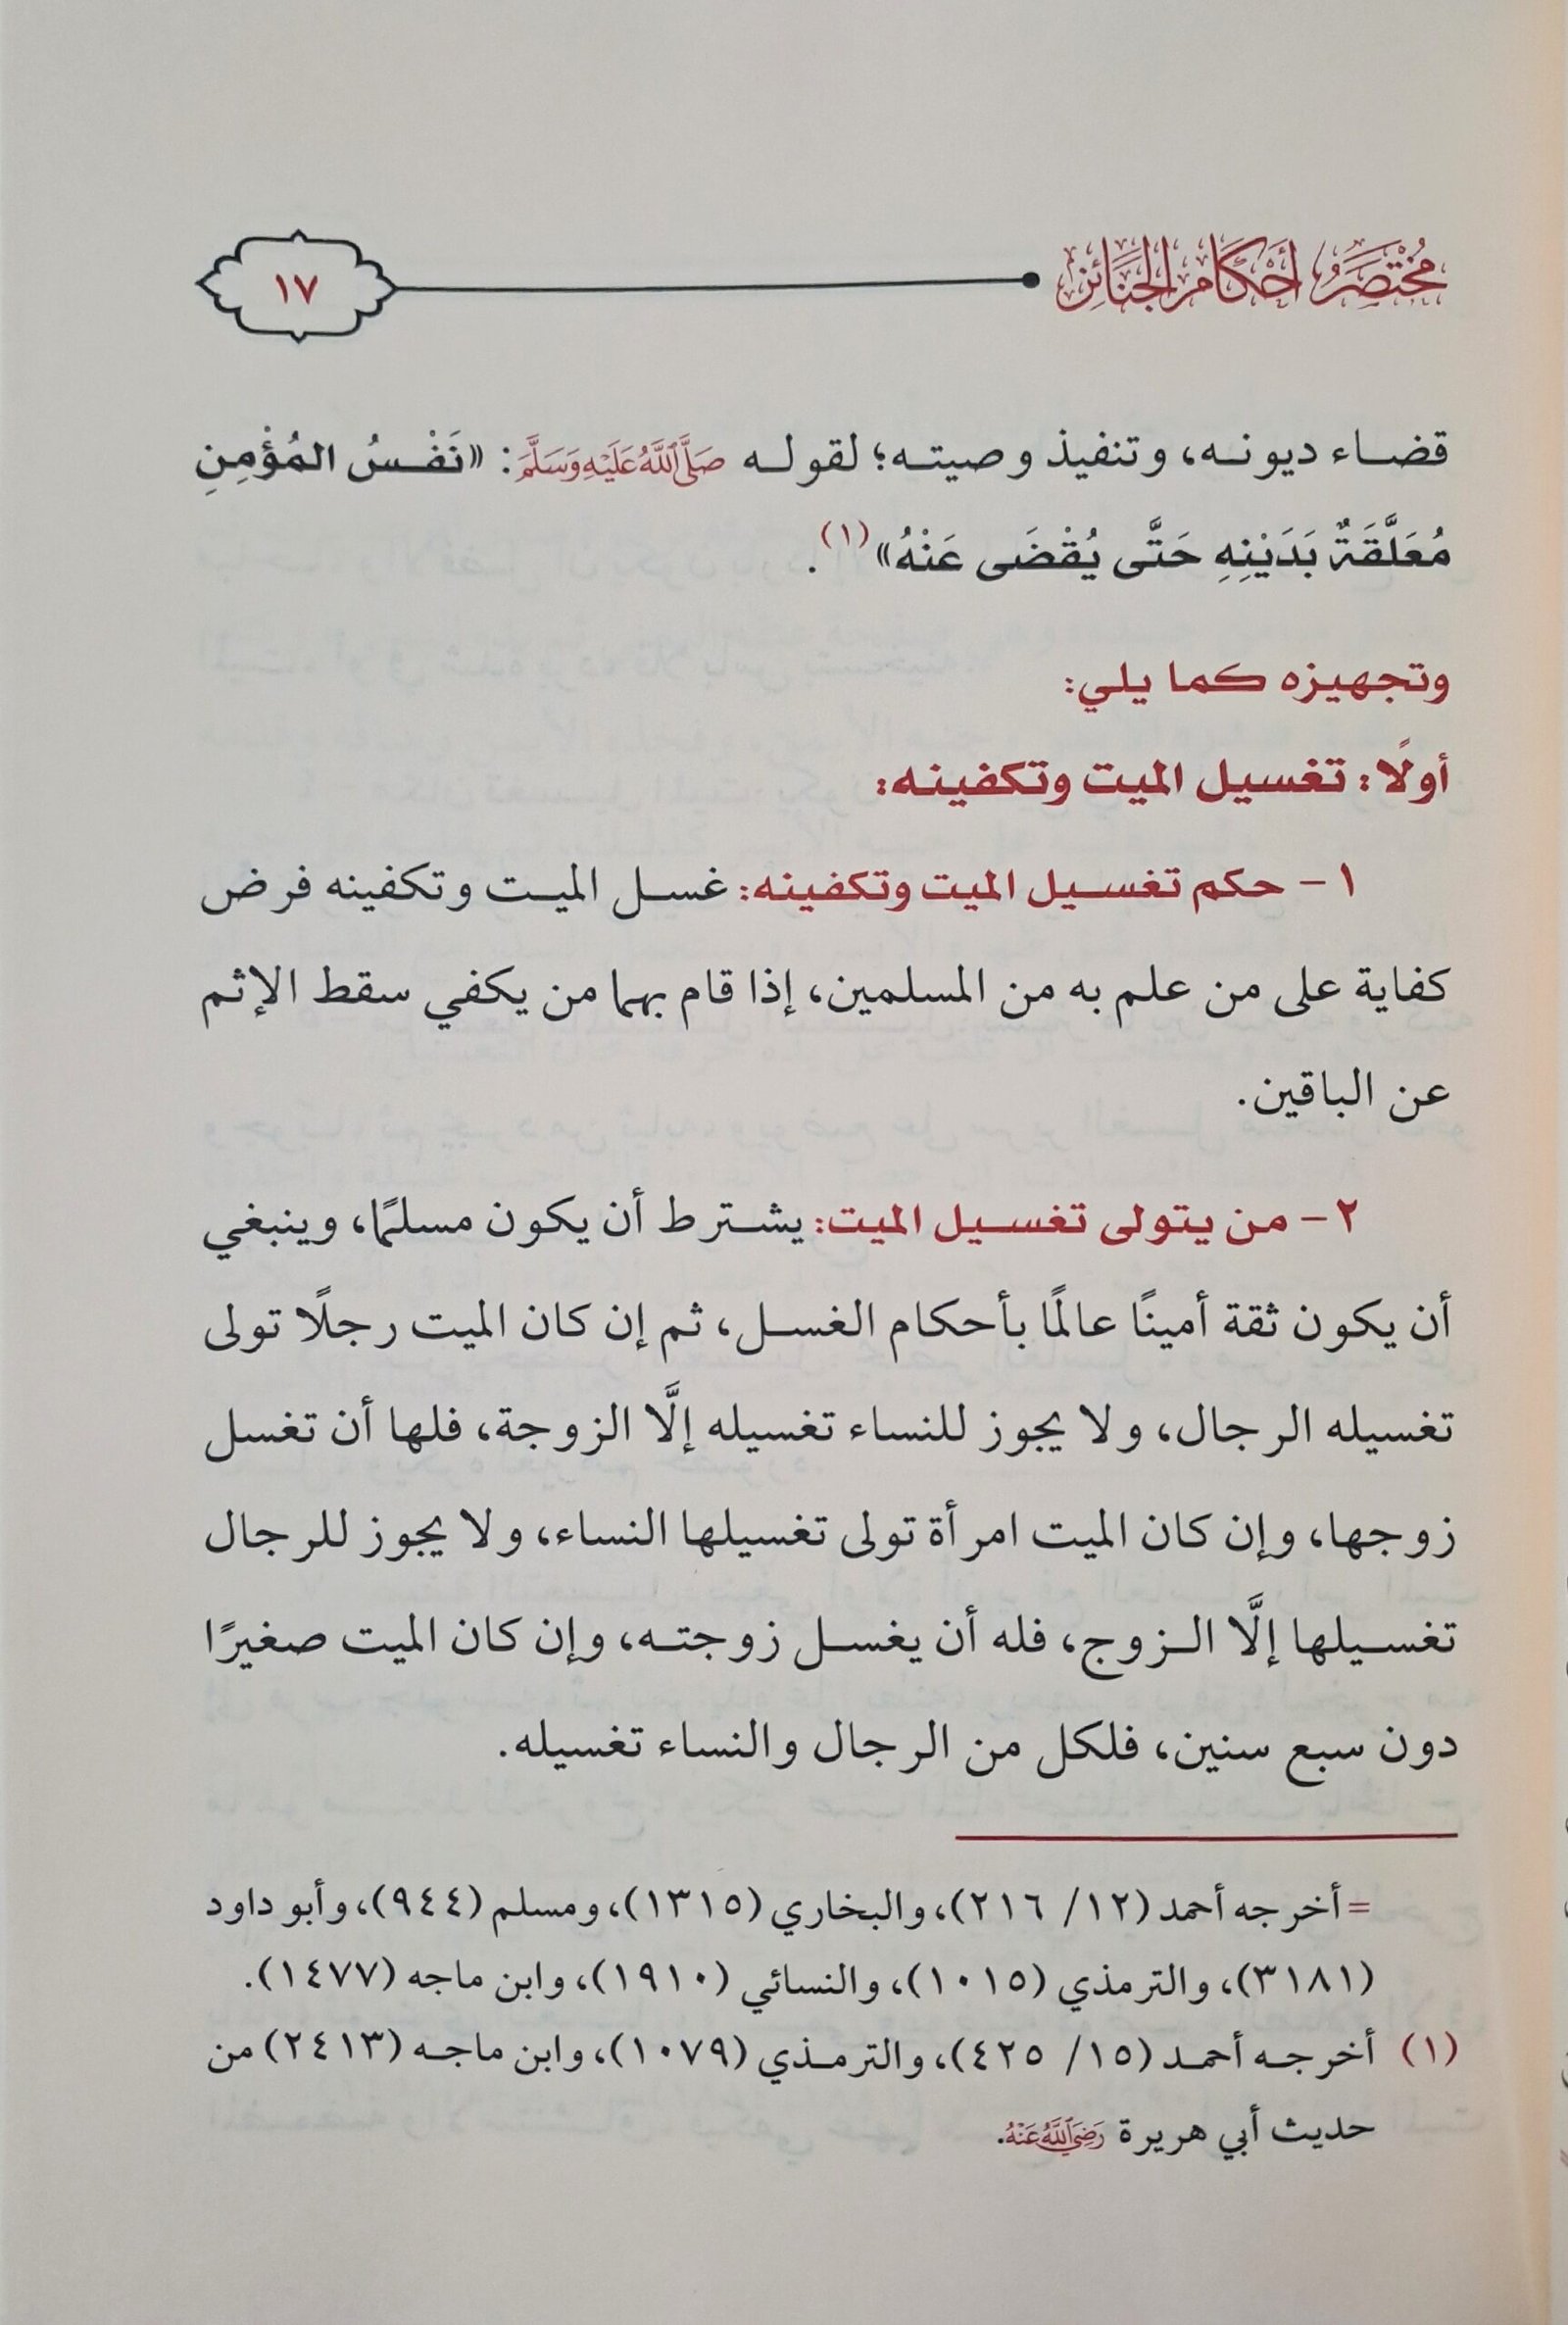 مُخْتَصَرُ أَحْكَامِ الجَنَائِزِ
١٧
قضاء ديونه، وتنفيذ وصيته؛ لقوله صَلَّى اللَّهُ عَلَيْهِ وَسَلَّمَ: «نَفْسُ المُؤْمِنِ
مُعَلَّقَةٌ بَدَيْنِهِ حَتَّى يُقْضَى عَنْهُ»(١).
وتجهيزه كما يلي:
أولًا: تغسيل الميت وتكفينه:
١- حكم تغسيل الميت وتكفينه: غسل الميت وتكفينه فرض
كفاية على من علم به من المسلمين، إذا قام بهما من يكفي سقط الإثم
عن الباقين.
٢- من يتولى تغسيل الميت: يشترط أن يكون مسلمًا، وينبغي
أن يكون ثقة أمينًا عالمًا بأحكام الغسل، ثم إن كان الميت رجلًا تولى
تغسيله الرجال، ولا يجوز للنساء تغسيله إلَّا الزوجة، فلها أن تغسل
زوجها، وإن كان الميت امرأة تولى تغسيلها النساء، ولا يجوز للرجال
تغسيلها إلَّا الزوج، فله أن يغسل زوجته، وإن كان الميت صغيرًا
دون سبع سنين، فلكل من الرجال والنساء تغسيله.
= أخرجه أحمد (١٢/ ٢١٦)، والبخاري (١٣١٥)، ومسلم (٩٤٤)، وأبو داود
(٣١٨١)، والترمذي (١٠١٥)، والنسائي (١٩١٠)، وابن ماجه (١٤٧٧).
(١) أخرجه أحمد (١٥/ ٤٢٥)، والترمذي (١٠٧٩)، وابن ماجه (٢٤١٣) من
حديث أبي هريرة رَضِيَ اللَّهُ عَنْهُ.